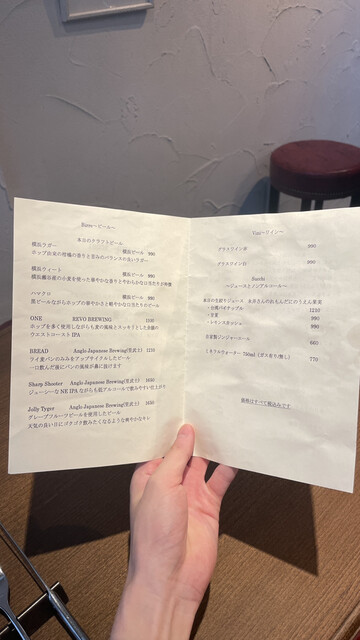 Birre～ビール～
本日のクラフトビール
横浜ラガー 横浜ビール 990
ホップ由来の柑橘の香りと苦みのバランスの良いラガー
横浜ウィート 横浜ビール 990
横浜瀬谷産の小麦を使った爽やかな香りとやわらかな口当たりが特徴
ハマクロ 横浜ビール 990
黒ビールながらホップの華やかさと軽やかな口当たりのビール
ONE REVO BREWING
ホップを多く使用しながらも麦の風味とスッキリとした余韻の
ウエストコーストIPA
BREAD Anglo-Japanese Brewing(野沢) 1210
ライ麦パンのみみをアップサイクルしたビール
一口飲んだ後にパンの風味が鼻に抜けます
Sharp Shooter Anglo-Japanese Brewing(野沢)
ジューシーなNE IPAながらも低アルコールで飲みやすい仕上がり
Jolly Tyger Anglo-Japanese Brewing(野沢)
グレープフルーツピールを使用したビール
天気の良い日にゴクゴク飲みたくなるような爽やかなキレ
Vini～ワイン～
グラスワイン赤 990
グラスワイン白 990
Succhi
～ジュースとノンアルコール～
本日の生搾りジュース
・台湾パイナップル 1210
・甘夏 990
・レモンスカッシュ 990
自家製ジンジャーエール 660
ミネラルウォーター 750ml（ガス有り/無し） 770
価格はすべて税込みです